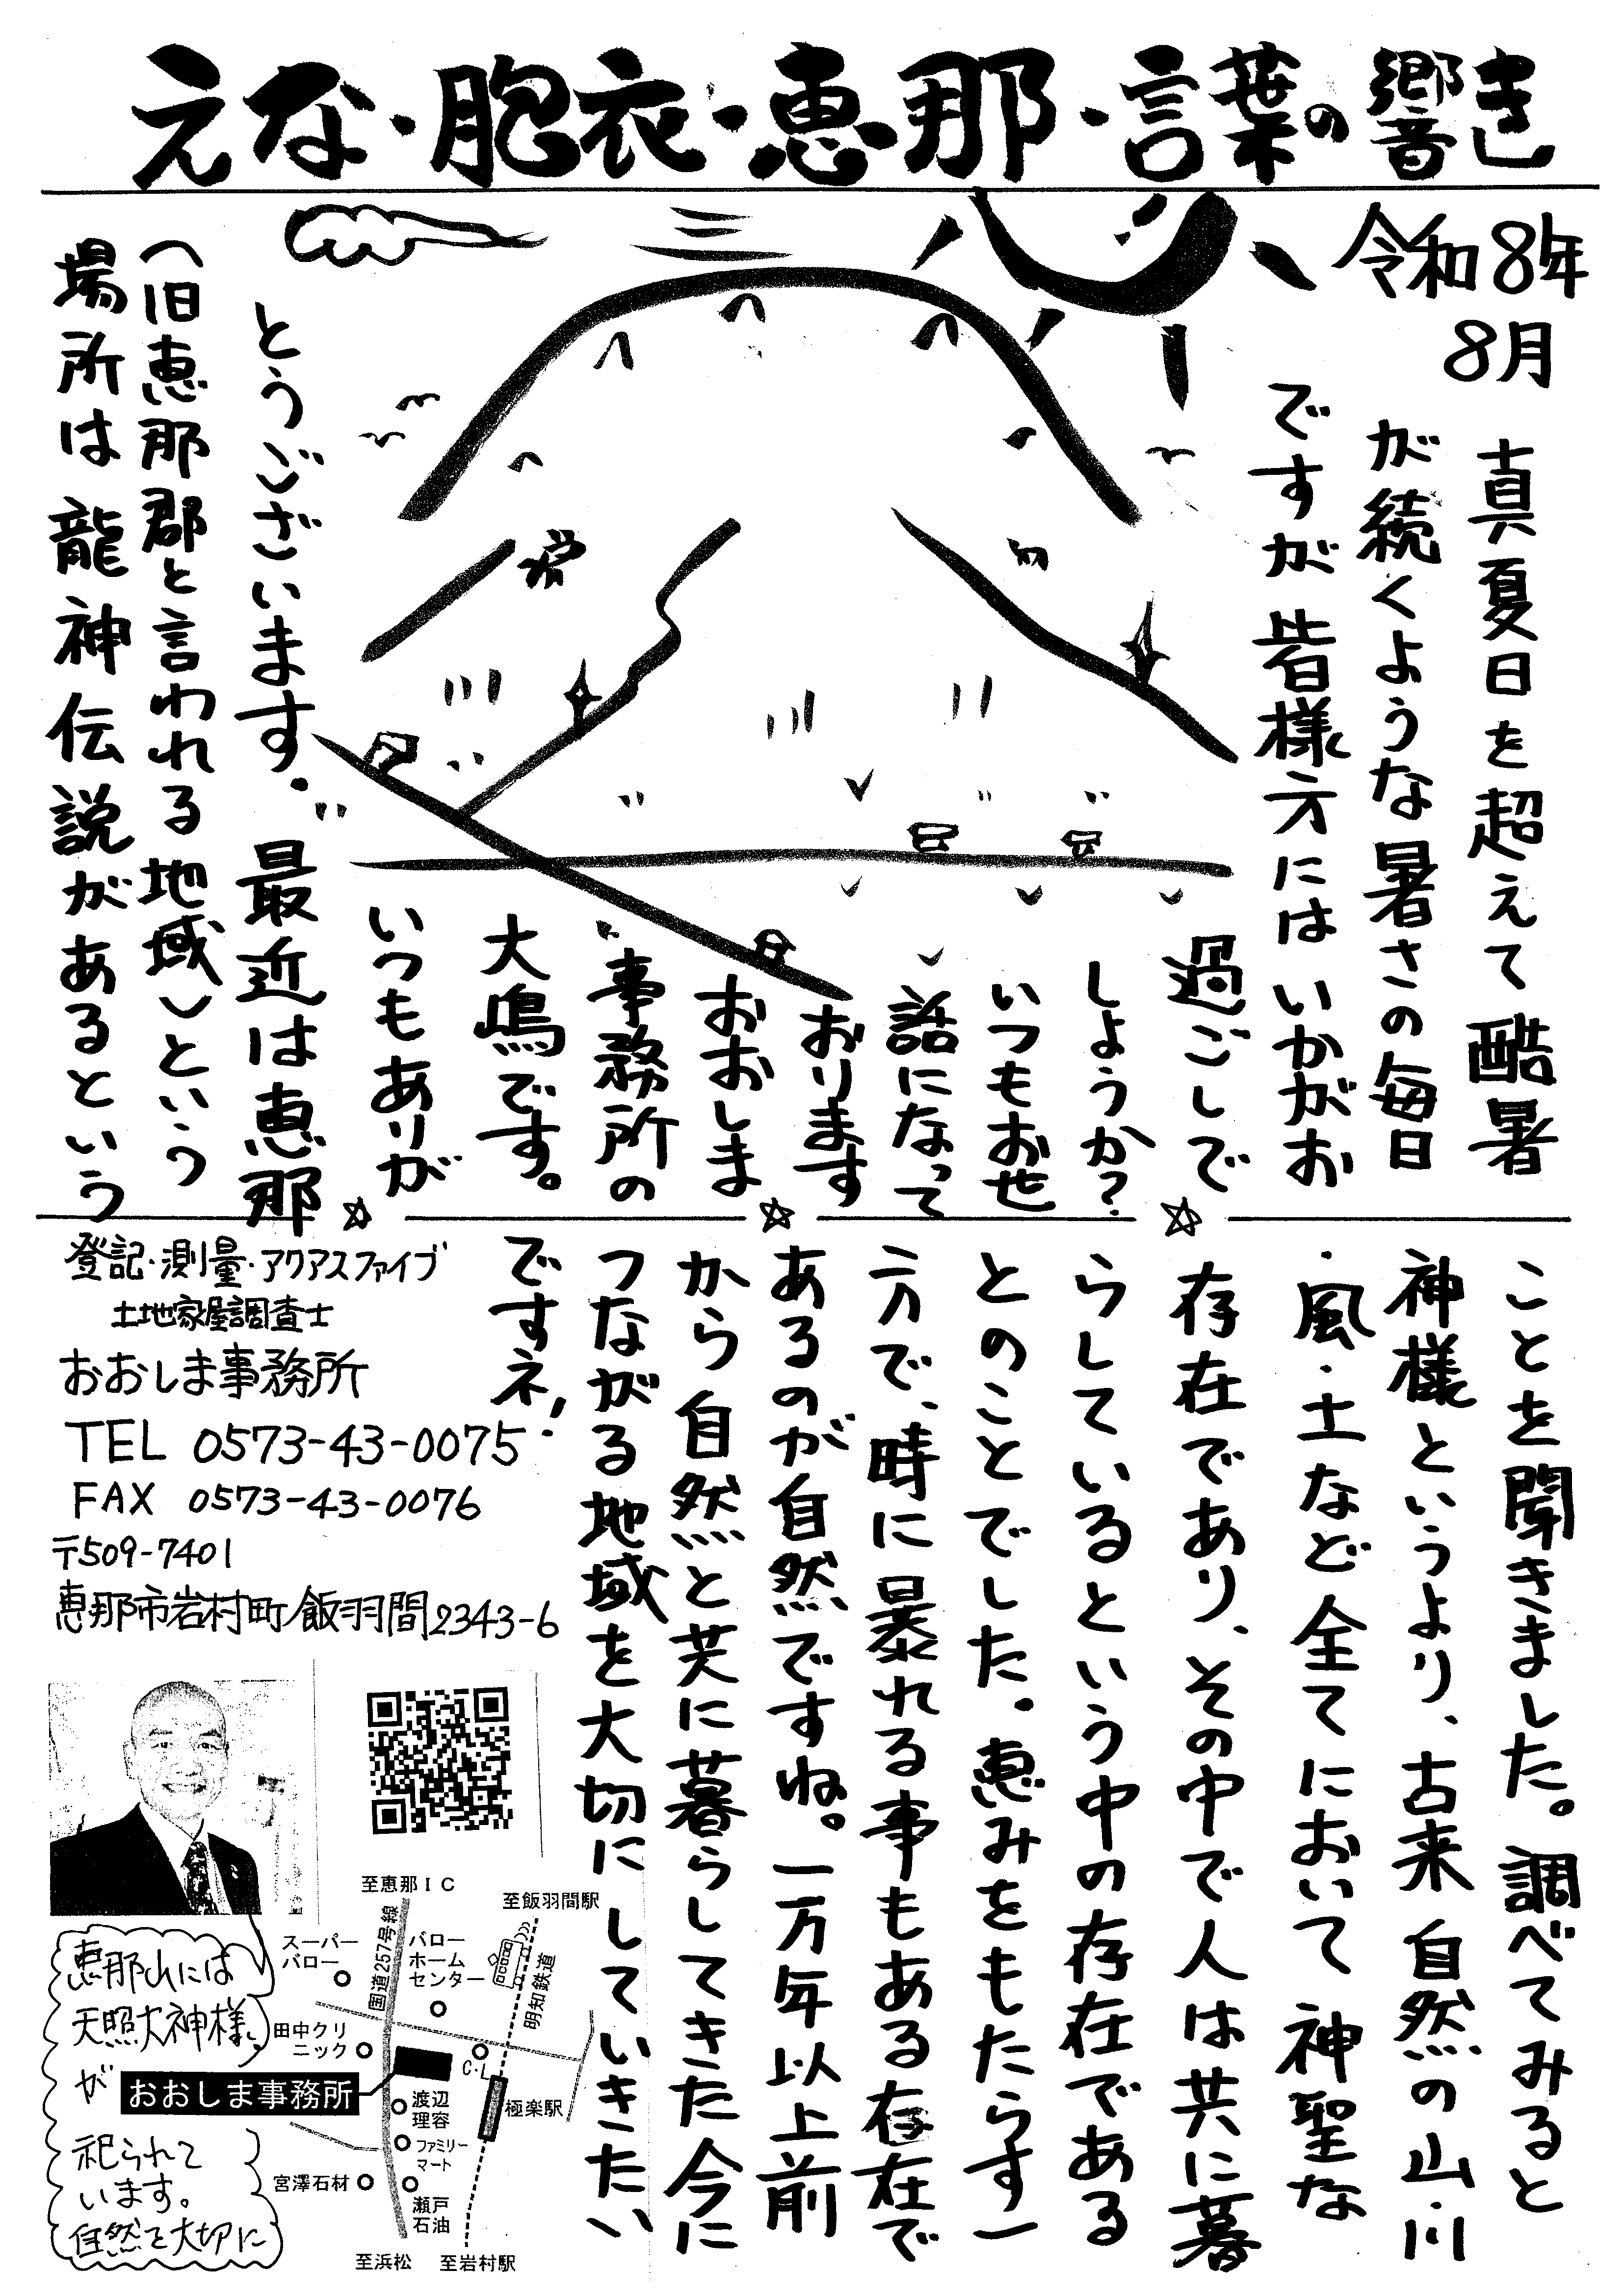 えな・胞衣・恵那・言葉の響き
令和8年
8月
真夏日を超えて酷暑
が続くような暑さの毎日
ですが皆様方にはいかがお
過ごしで
しょうか?
いつもお世
話になって
おります
おおしま
事務所の
大嶋です。
いつもあり が
とうございます。最近は恵那
(旧恵那郡と言われる地域)という
場所は龍神伝説があるという
ことを聞きました。調べてみると
神様というより、古来自然の山・川
・風・土など全てにおいて神聖な
存在であり、その中で人は共に暮
らしているという中の存在である
とのことでした。恵みをもたらす一
方で、時に暴れる事もある存在で
あるのが自然ですね。一万年以上前
から自然と共に暮らしてきた今に
つながる地域を大切にしていきたい
ですネ!
登記・測量・アクアスファイブ
土地家屋調査士
おおしま事務所
TEL 0573-43-0075
FAX 0573-43-0076
〒509-7401
恵那市岩村町飯羽間2343-6
恵那山には
天照大神様
が
祀られて
います。
自然を大切に
至恵那IC
至飯羽間駅
国道257号線
スーパー
バロー
バロー
ホーム
センター
明知鉄道
田中クリ
ニック
C・L
おおしま事務所
渡辺
理容
極楽駅
ファミリー
マート
宮澤石材
瀬戸
石油
至浜松
至岩村駅